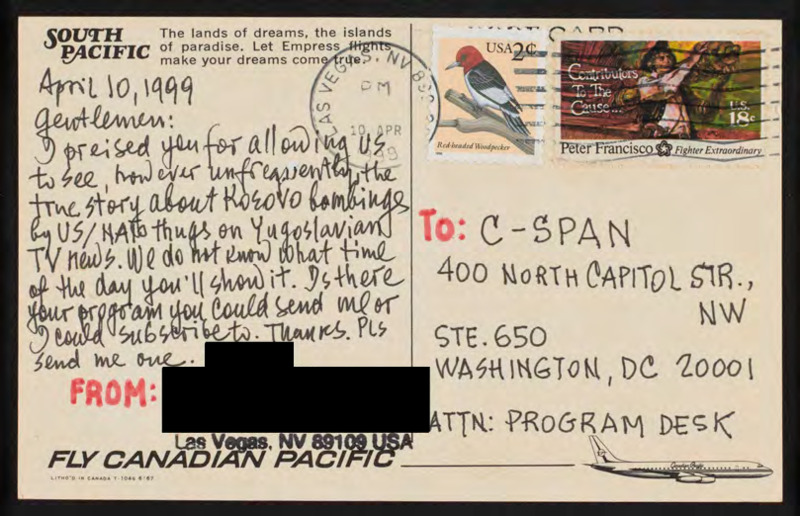 SOUTH PACIFIC
The lands of dreams, the islands
of paradise. Let Empress flights
make your dreams come true.
April 10, 1999
Gentlemen:
I preised you for allowing US
to see, however unfrequently, the
true story about Kosovo bombings
by US/NATO thugs on Yugoslavian
TV news. We do not know what time
of the day you'll show it. Is there
your program you could send me or
I could subscribe to. Thanks. Pls
send me one.
FROM:
Las Vegas, NV 89109 USA
FLY CANADIAN PACIFIC
LITHO'D IN CANADA
POST CARD
LAS VEGAS, NV
PM
10 APR
1999
USA 2¢
Red-headed Woodpecker
Contributors
To The
Cause...
U.S.
18c
Peter Francisco Fighter Extraordinary
To: C-SPAN
400 NORTH CAPITOL STR.,
NW
STE. 650
WASHINGTON, DC 20001
ATTN: PROGRAM DESK